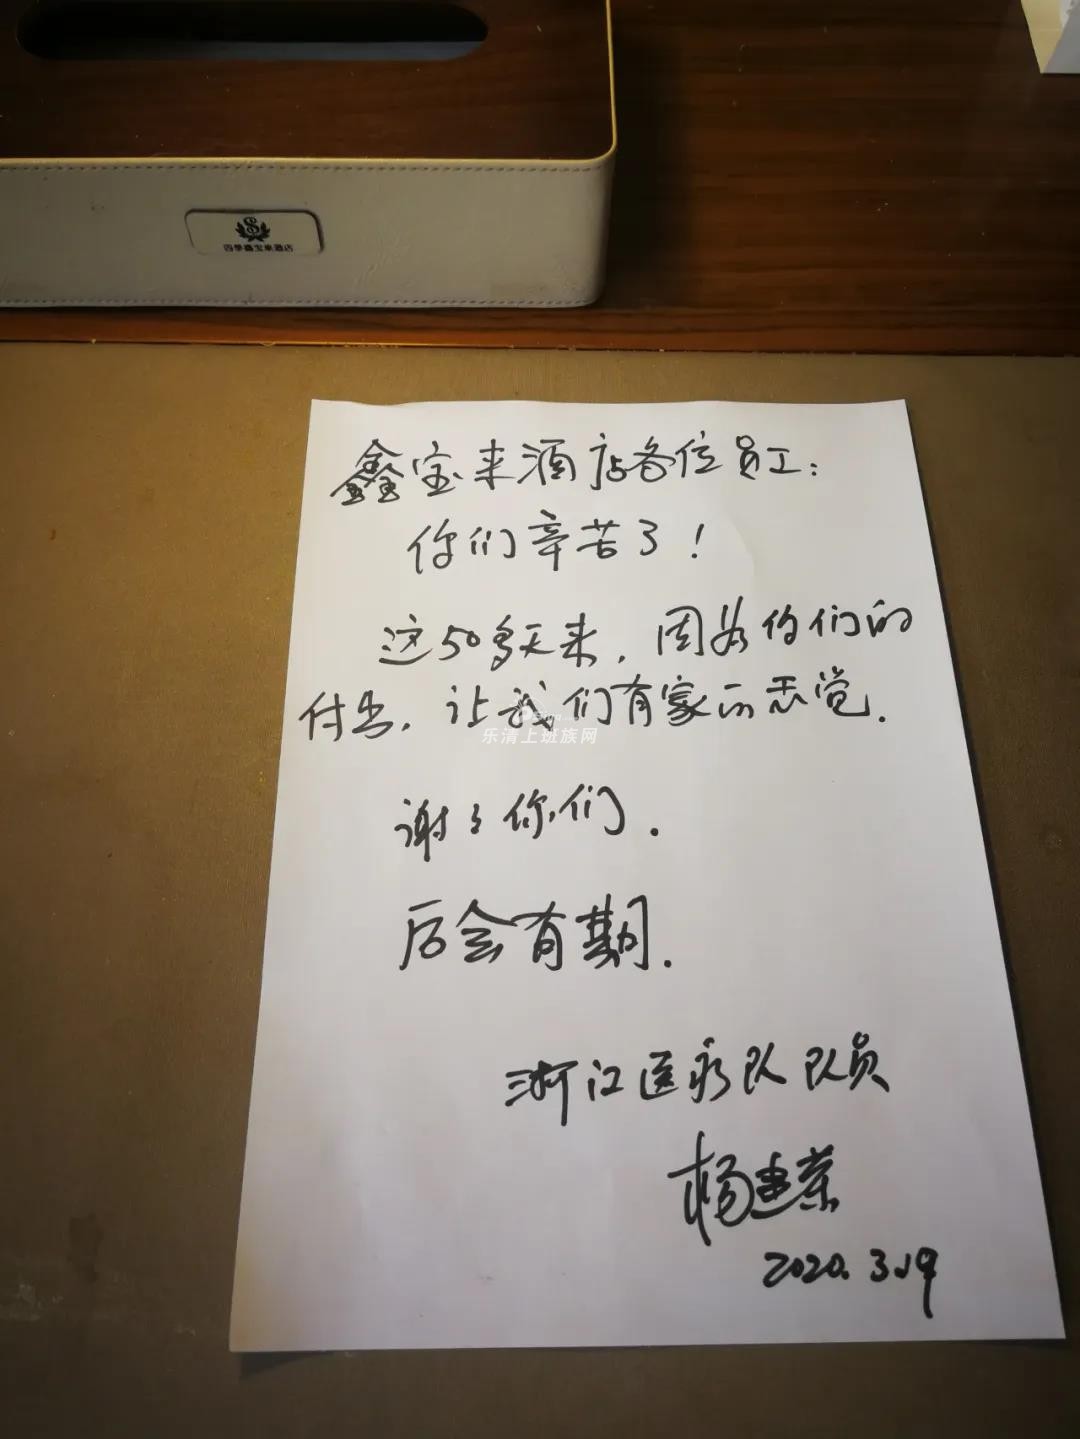 四季鑫宝来酒店
鑫宝来酒店各位员工：
你们辛苦了！
这50多天来，因为你们的
付出，让我们有家的感觉.
乐清上班族网
谢谢你们.
后会有期.
浙江医疗队队员
杨建荣
2020.3.19